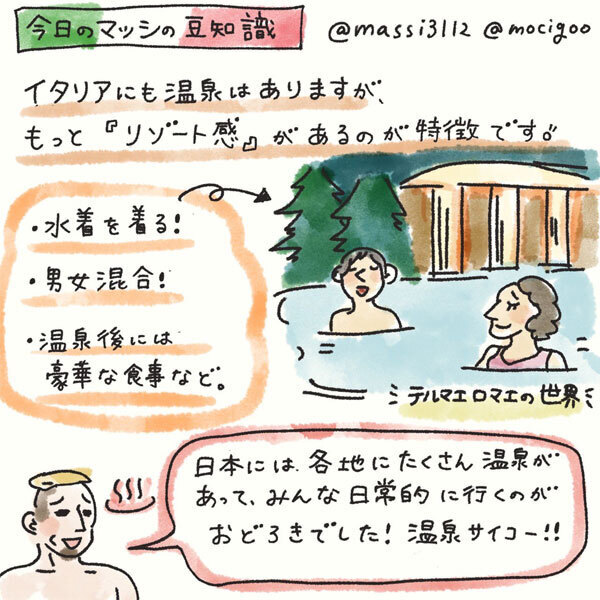 今日のマッシの豆知識 @massi3112 @mocigoo
イタリアにも温泉はありますが、
もっと『リゾート感』があるのが特徴です。
・水着を着る!
・男女混合!
・温泉後には
豪華な食事など。
テルマエロマエの世界
日本には、各地にたくさん温泉が
あって、みんな日常的に行くのが
おどろきでした!温泉サイコー!!